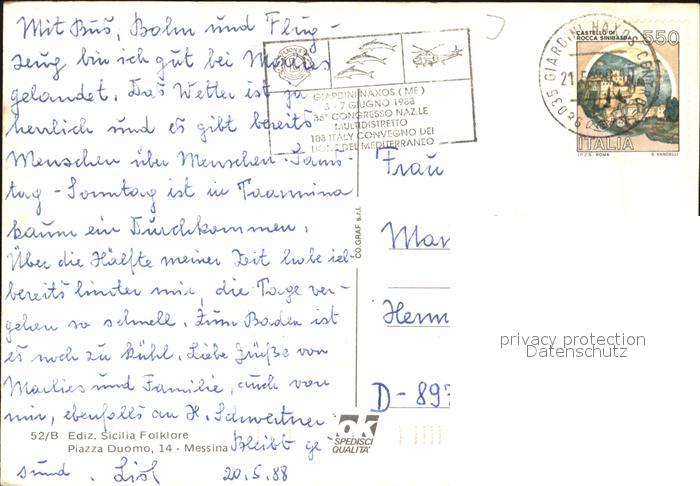 Mit Bus, Bahn und Flug-
zeug bin ich gut bei Marlies
gelandet. Das Wetter ist ja
herrlich und es gibt bereits
Menschen über Menschen. Sams-
tag - Sonntag ist in Taormina
kaum ein Durchkommen.
Über die Hälfte meiner Zeit habe ich
bereits hinter mir, die Tage ver-
gehen so schnell. Zum Baden ist
es noch zu kühl. Liebe Grüße von
Marlies und Familie, auch von
mir, ebenfalls an H. Schwertner.
Bleibt ge-
sund. Lisl 20.5.88
52/B Ediz. Sicilia Folklore
Piazza Duomo, 14 - Messina
CO.GRAF s.r.l.
ok
SPEDISCI
QUALITA'
GIARDINI NAXOS (ME)
3 - 7 GIUGNO 1988
36° CONGRESSO NAZ.LE
MULTIDISTRETTO
108 ITALY CONVEGNO DEI
LIONS DEL MEDITERRANEO
GIARDINI NAXOS
CASTELLO DI
ROCCA SINIBALDA
550
ITALIA
I.P.Z.S. - ROMA E. VANGELLI
Frau
Mar
Herm
D-897
privacy protection
Datenschutz